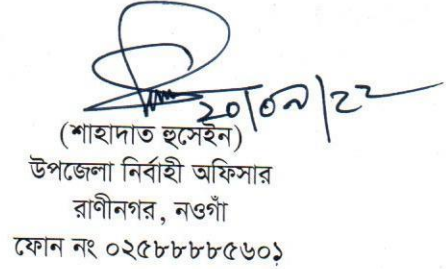 ২০|০৯|২২
(শাহাদাত হুসেইন)
উপজেলা নির্বাহী অফিসার
রাণীনগর, নওগাঁ
ফোন নং ০২৫৮৮৮৮৫৬০১